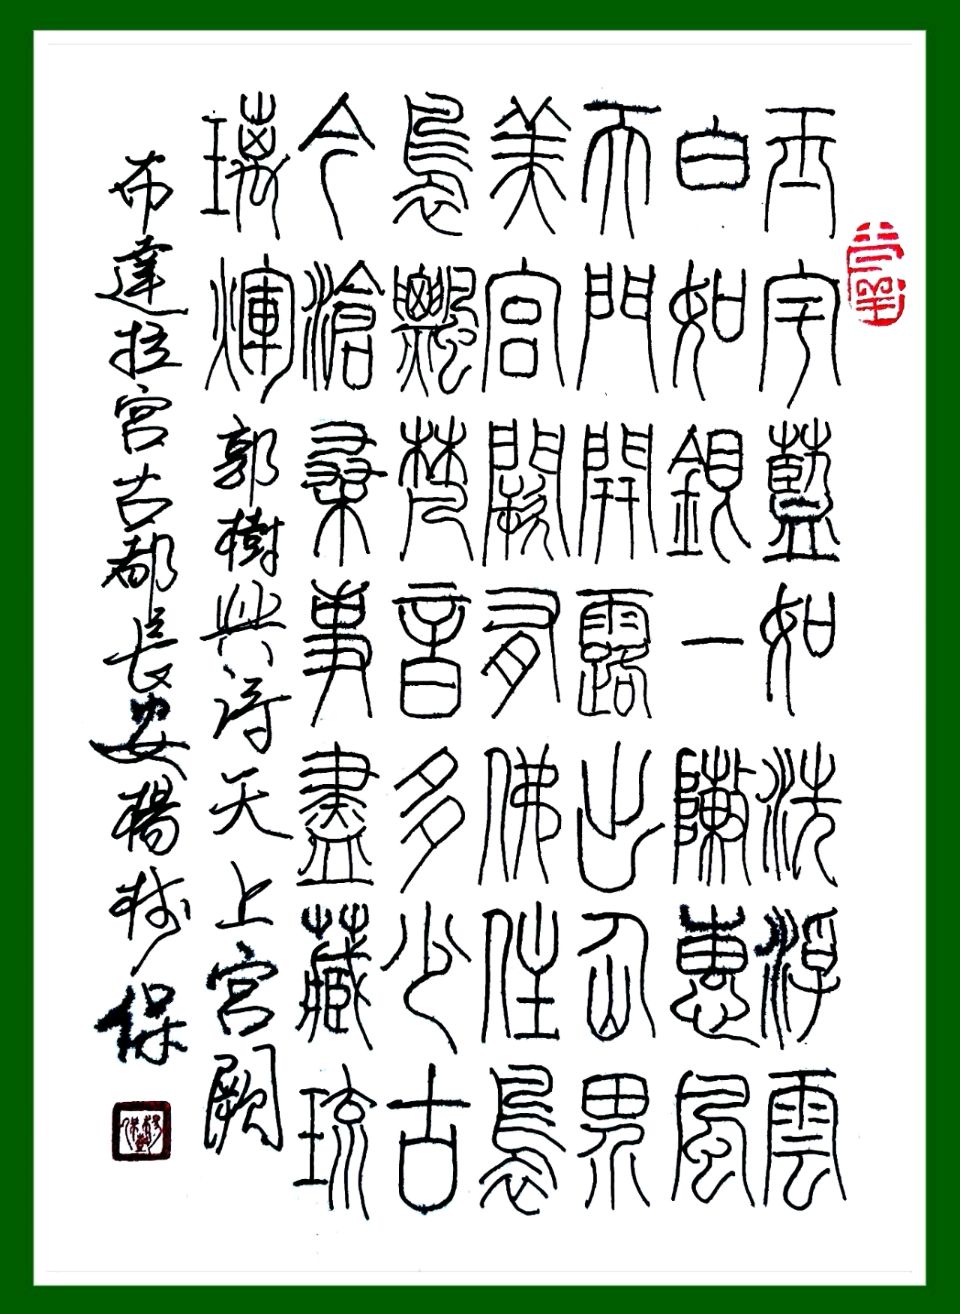 玉宇藍如洗浮雲
白如銀一陣惠風
天門開露出仙界
美宮闕有佛住裊
裊梵音多少古
今滄桑事盡藏琉
璃輝郭樹興詩天上宮闕
布達拉宮古都長安楊保